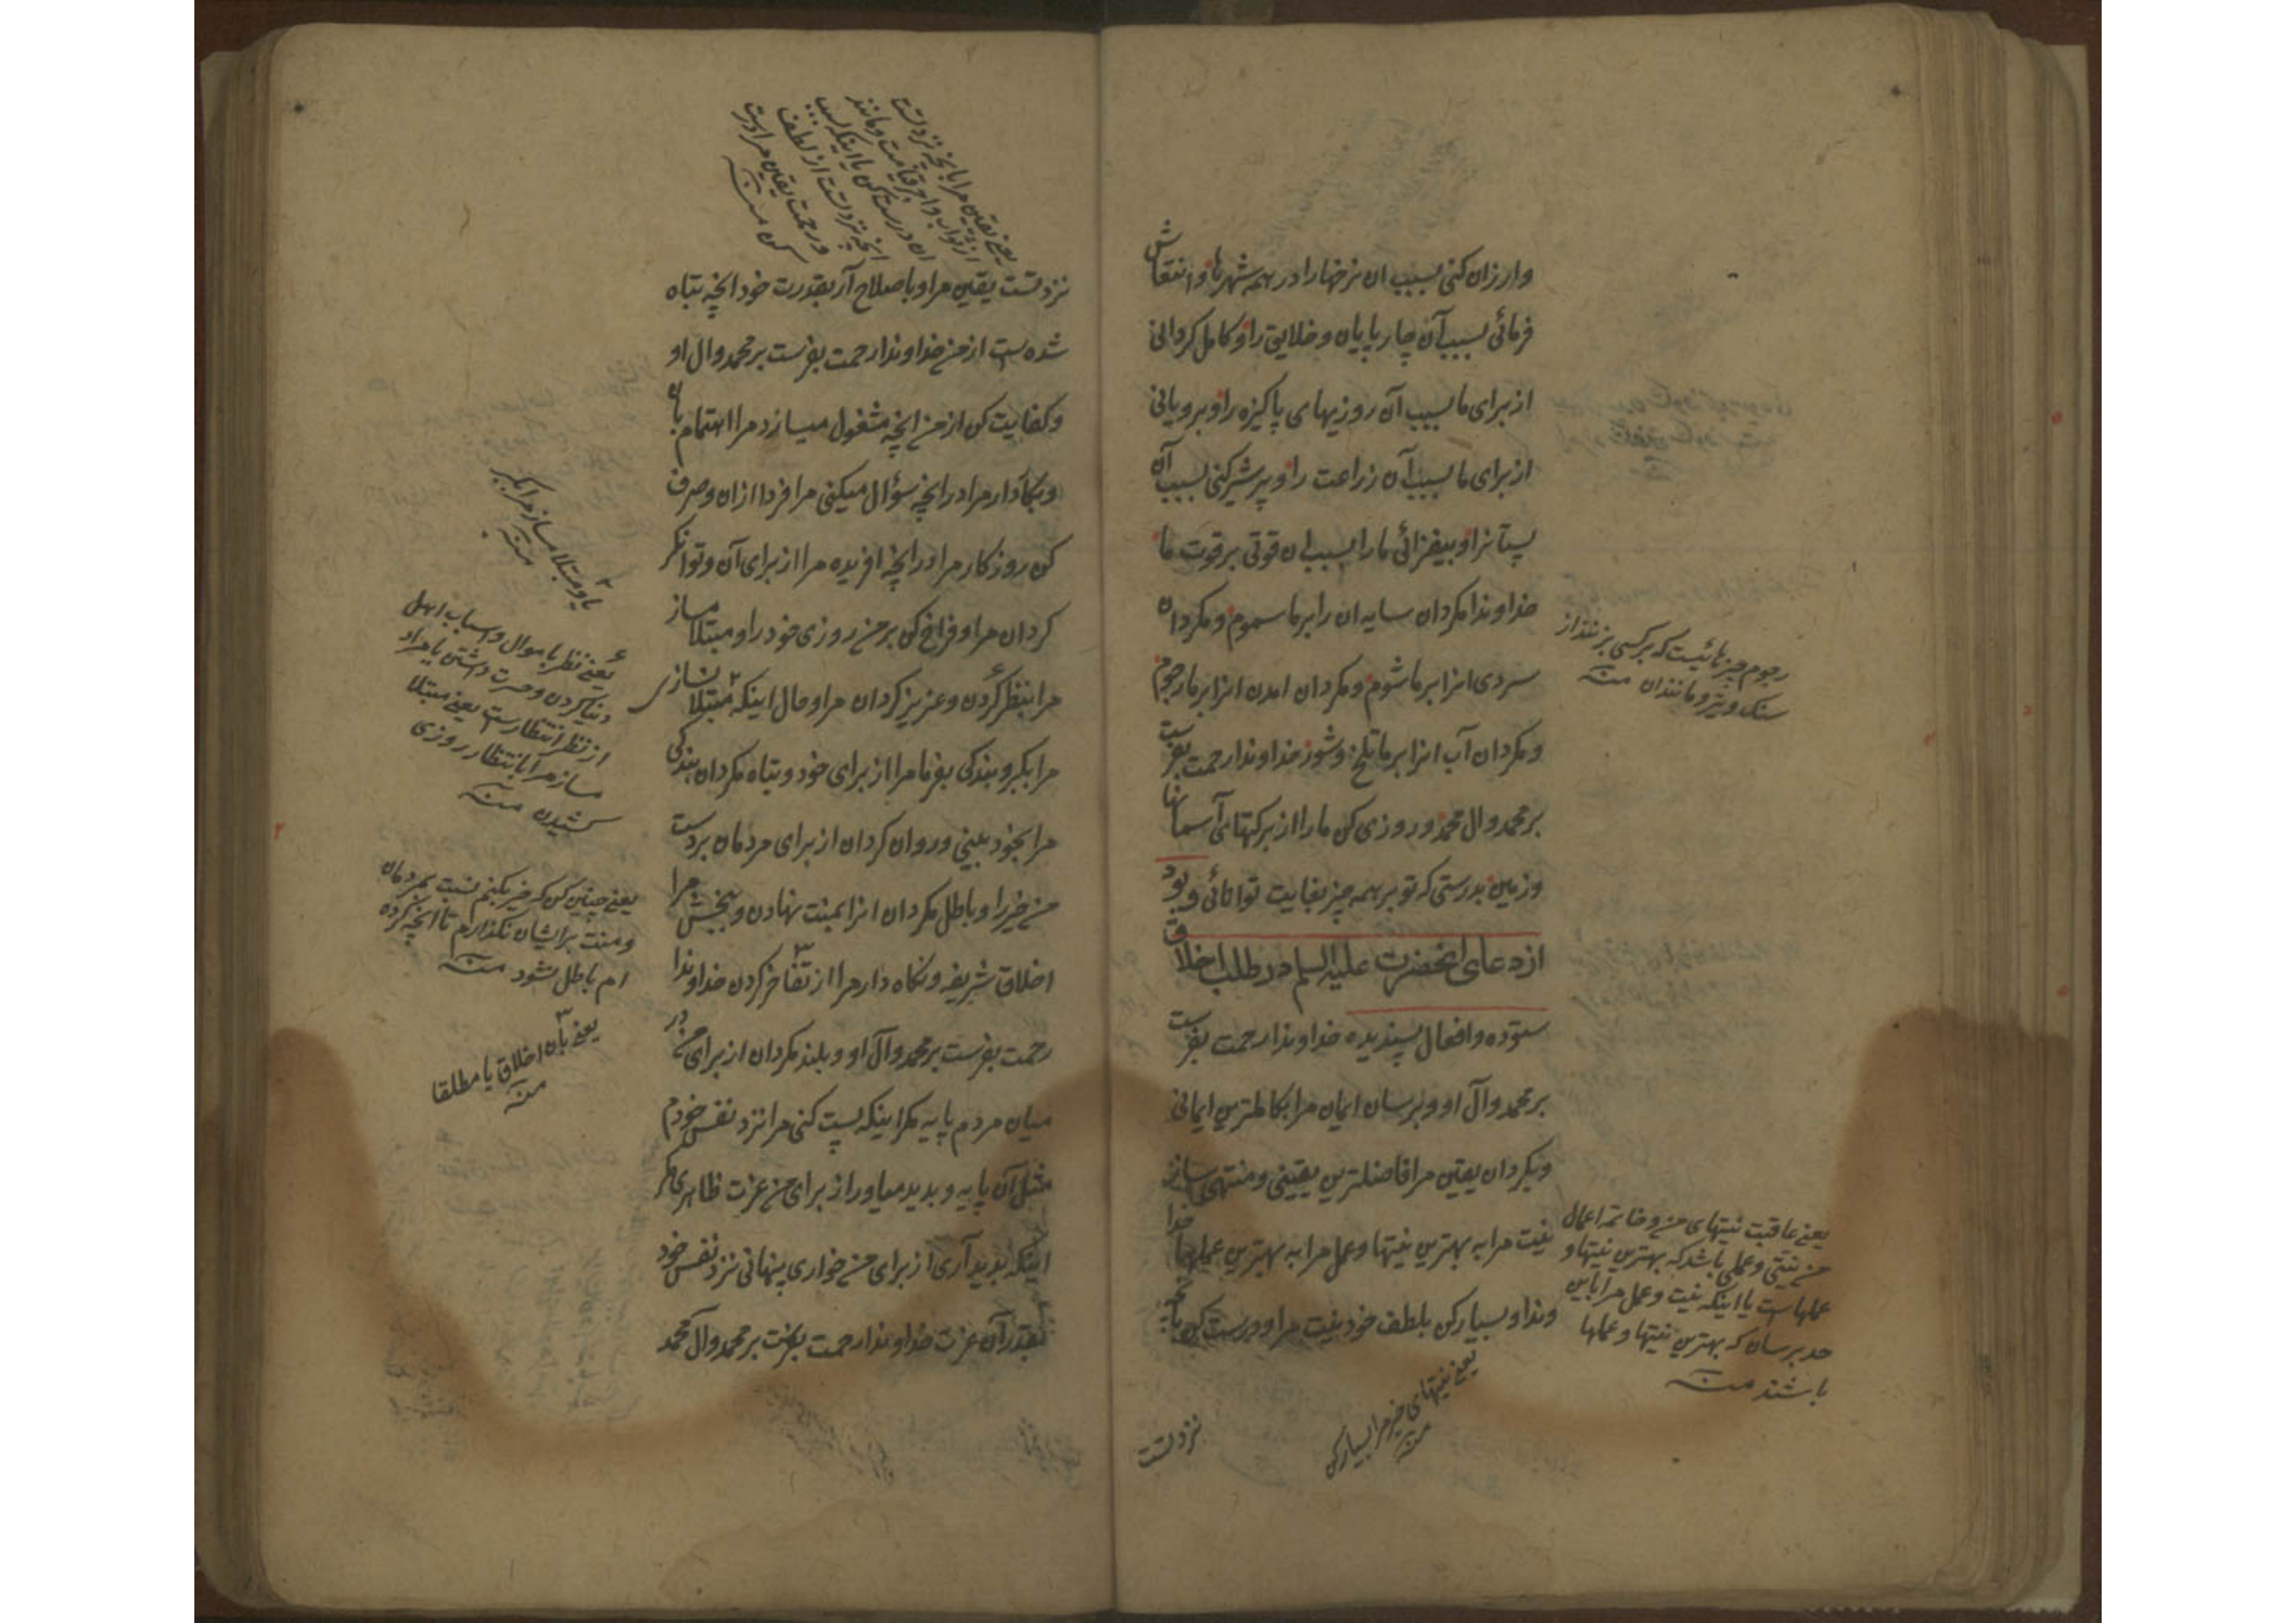 وارزان کنی بسبب ان نرخها را در همه شهرها و انتعاش
فرمائی بسبب آن چارپایان و خلایق را و کامل کردانی
از برای ما بسبب آن روزیهای پاکیزه را و برویانی
از برای ما بسبب آن زراعت را و پر شیر کنی بسبب آن
پستانرا و بیفزائی ما را بسبب ان قوتی بر قوت ما
خداوندا مکردان سایه ان را بر ما سموم و مکردان
سردی انرا بر ما شوم و مکردان امدن انرا بر ما رجوم
و مکردان آب انرا بر ما تلخ و شور خداوندا رحمت بفرست
بر محمد و ال محمد و روزی کن ما را از برکتهای آسمانها
و زمین بدرستی که تو بر همه چیز بغایت توانائی و بود
از دعای انحضرت علیه السلم در طلب اخلاق
ستوده و افعال پسندیده خداوندا رحمت بفرست
بر محمد و آل او و برسان ایمان مرا بکاملترین ایمانی
و بکردان یقین مرا فاضلترین یقینی و منتهی ساز
نیت مرا به بهترین نیتها و عمل مرا به بهترین عملها خدا
وندا و بسیار کن بلطف خود نیت مرا و درست کن بآنچه
نزد تست
رجوم چیزهائیست که بر کسی بیندازند
سنک و تیر و مانندان منه
یعنی عاقبت نیتهای من و خاتمه اعمال
من نیتی و عملی باشد که بهترین نیتها و
عملهاست یا اینکه نیت و عمل مرا باین
حد برسان که بهترین نیتها و عملها
باشند منه
یعنی نیتهای خیر مرا بسیار کن
منه
یعنی یقین مرا بانچه نزد تست
از ثواب و اجر قیامت و مانند
ان درست کن یا اینکه بسبب
انچه نزد تست از لطف
و رحمت یقین مرا درست
کن منه
نزد تست یقین مرا و باصلاح آر بقدرت خود انچه تباه
شده است از من خداوندا رحمت بفرست بر محمد و ال او
و کفایت کن از من انچه مشغول میسازد مرا اهتمام بان
و بکار دار مرا در انچه سؤال میکنی مرا فردا ازان و صرف
کن روزکار مرا در انچه افریده مرا از برای آن و توانکر
کردان مرا و فراخ کن بر من روزی خود را و مبتلا مساز
مرا بنظر کردن و عزیز کردان مرا و حال اینکه مبتلا نسازی
مرا بکبر و بندکی بفرما مرا از برای خود و تباه مکردان بندکی
مرا بخود بینی و روان کردان از برای مردمان بر دست
من خیر را و باطل مکردان انرا بمنت نهادن و ببخش مرا
اخلاق شریفه و نکاه دار مرا از تفاخر کردن خداوندا
رحمت بفرست بر محمد و آل او و بلند مکردان از برای من در
میان مردم پایه مکر اینکه پست کنی مرا نزد نفس خودم
مثل آن پایه و پدید میاور از برای من عزت ظاهری مکر
اینکه پدید آری از برای من خواری پنهانی نزد نفس خود
بقدر آن عزت خداوندا رحمت بفرست بر محمد و ال محمد
یا و مبتلا مساز مرا بکبر
منه
یعنی نظر باموال و اسباب اهل
دنیا کردن و حسرت داشتن یا مراد
از نظر انتظارست یعنی مبتلا
مساز مرا بانتظار روزی
کشیدن منه
یعنی چنین کن که خیر بکنم نسبت بمردمان
و منت برایشان نکذارم تا انچه کرده
ام باطل نشود منه
یعنی بان اخلاق یا مطلقا
منه